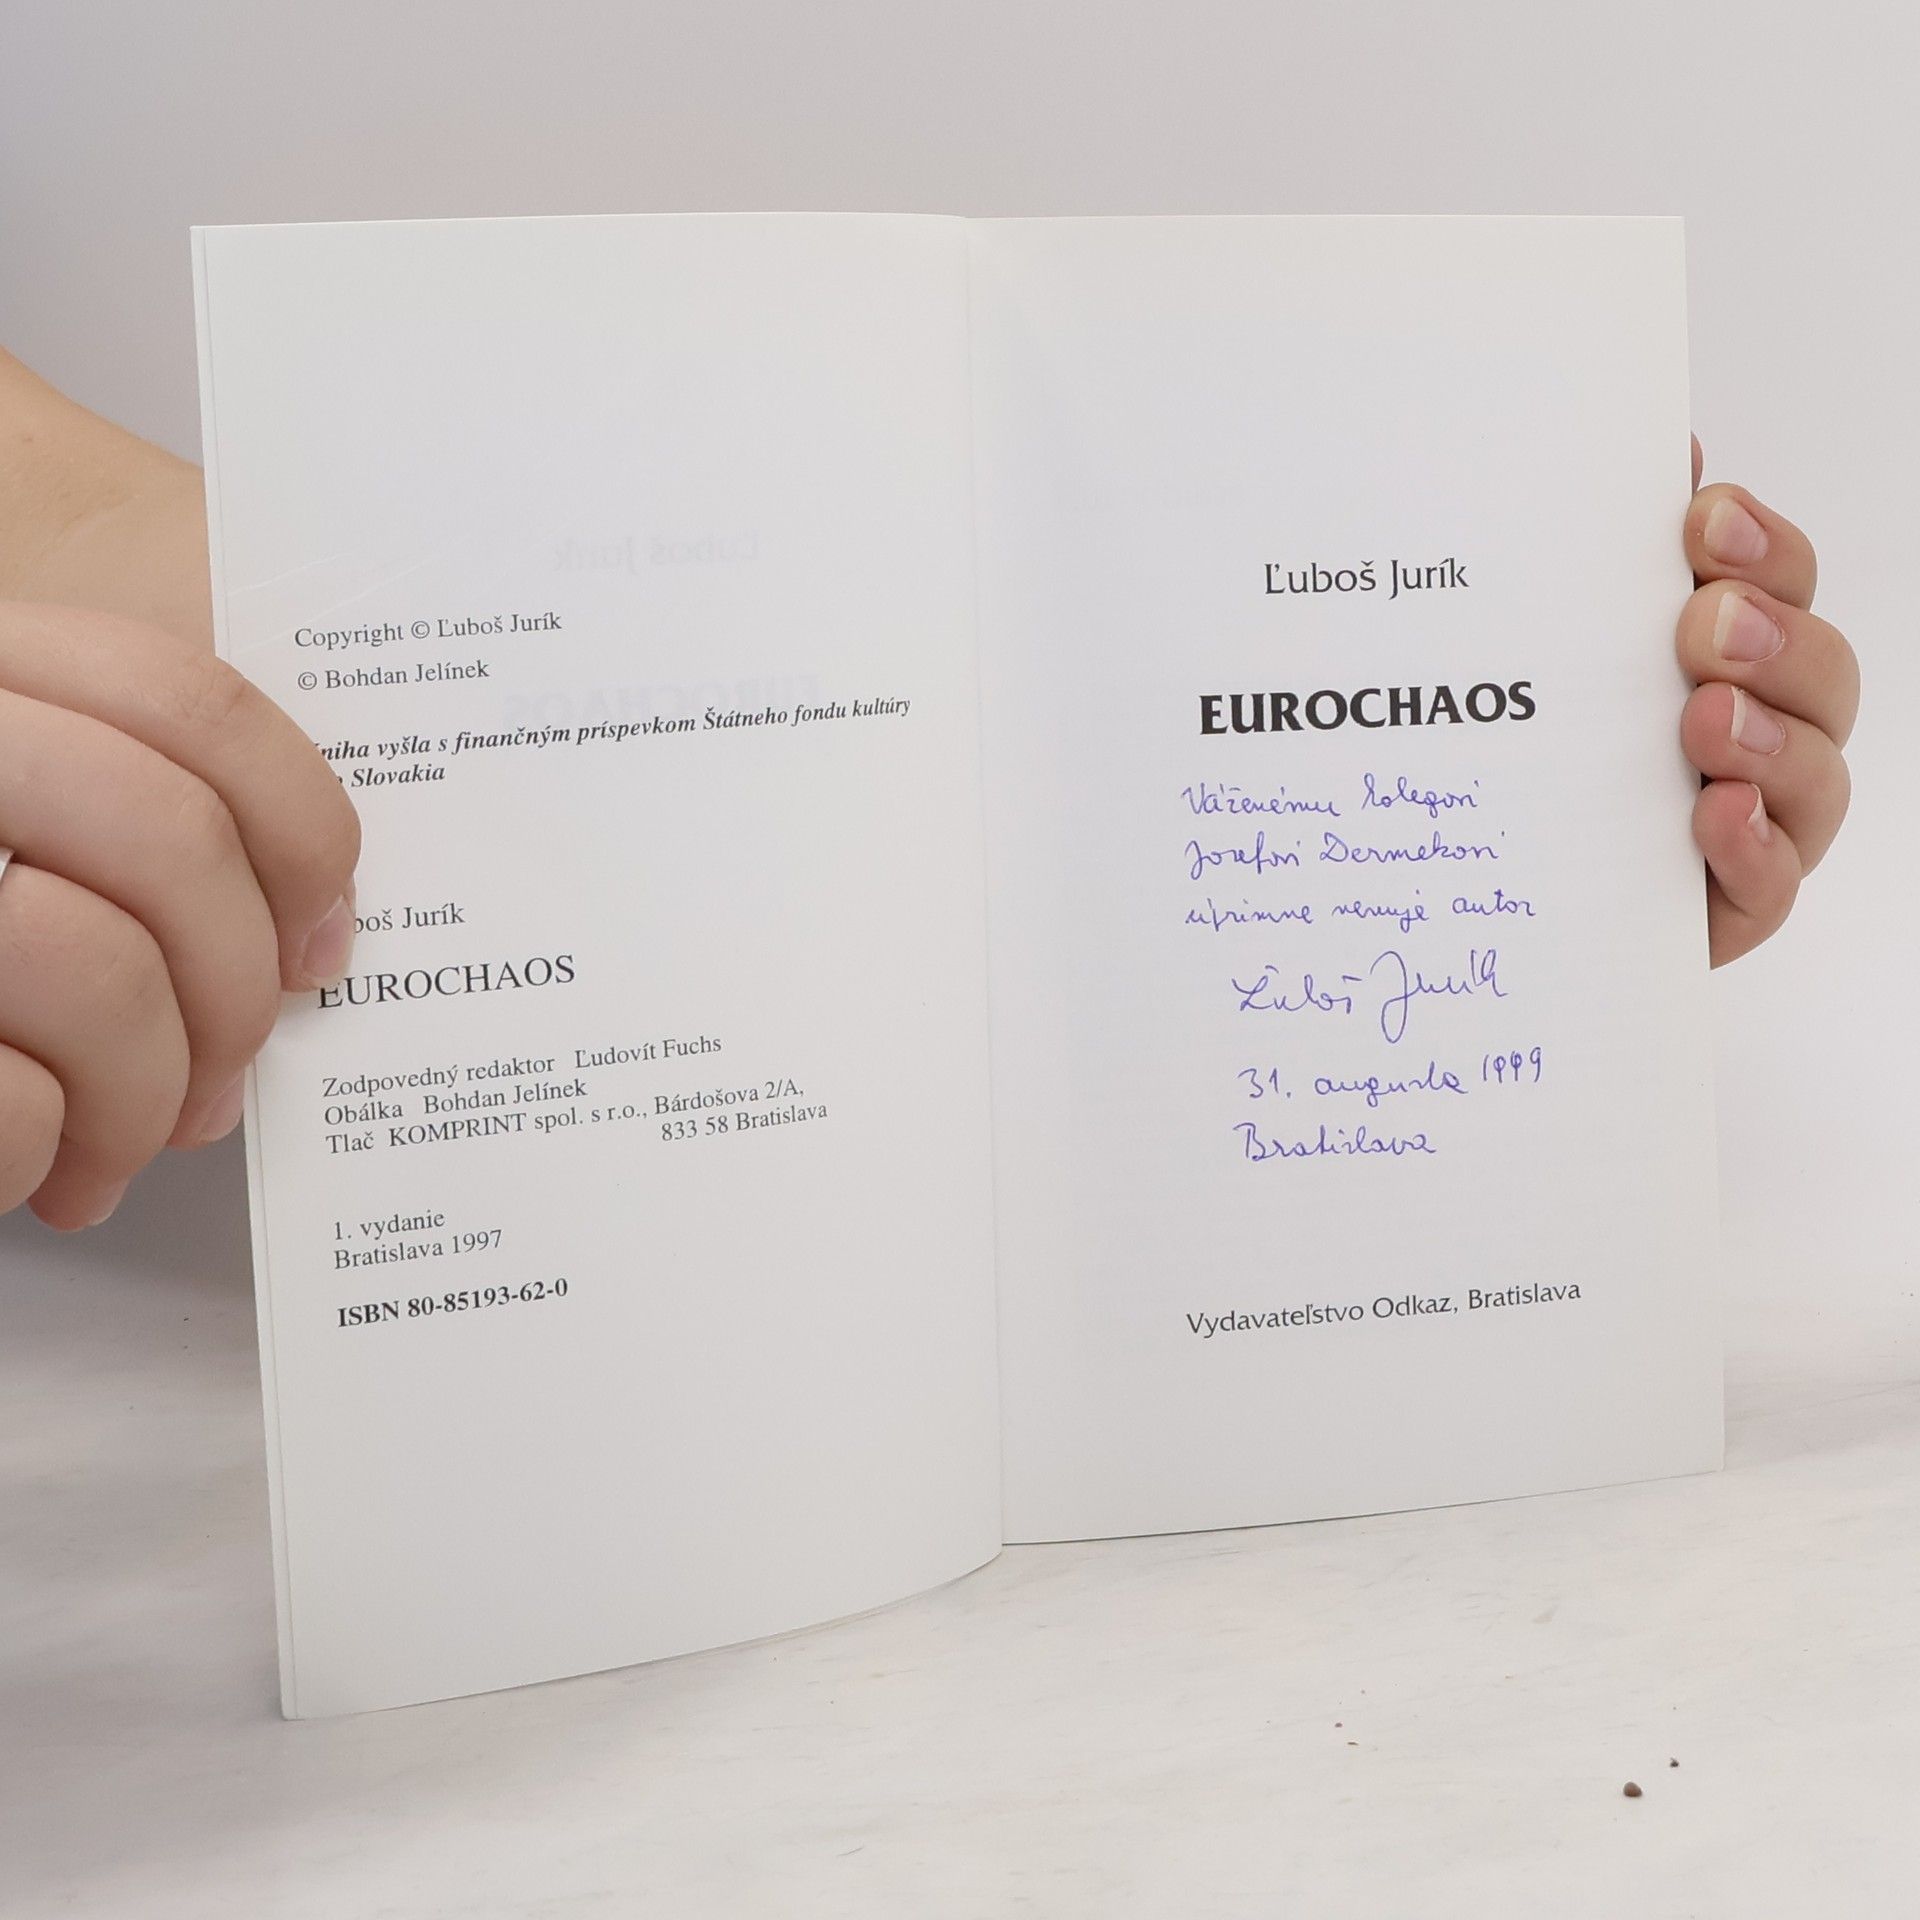 Copyright © Ľuboš Jurík
© Bohdan Jelínek
niha vyšla s finančným príspevkom Štátneho fondu kultúry
Slovakia
boš Jurík
EUROCHAOS
Zodpovedný redaktor Ľudovít Fuchs
Obálka Bohdan Jelínek
Tlač KOMPRINT spol. s r.o., Bárdošova 2/A,
833 58 Bratislava
1. vydanie
Bratislava 1997
ISBN 80-85193-62-0
Ľuboš Jurík
EUROCHAOS
Váženému kolegovi
Jozefovi Dermekovi
úprimne venuje autor
Ľuboš Jurík
31. augusta 1999
Bratislava
Vydavateľstvo Odkaz, Bratislava